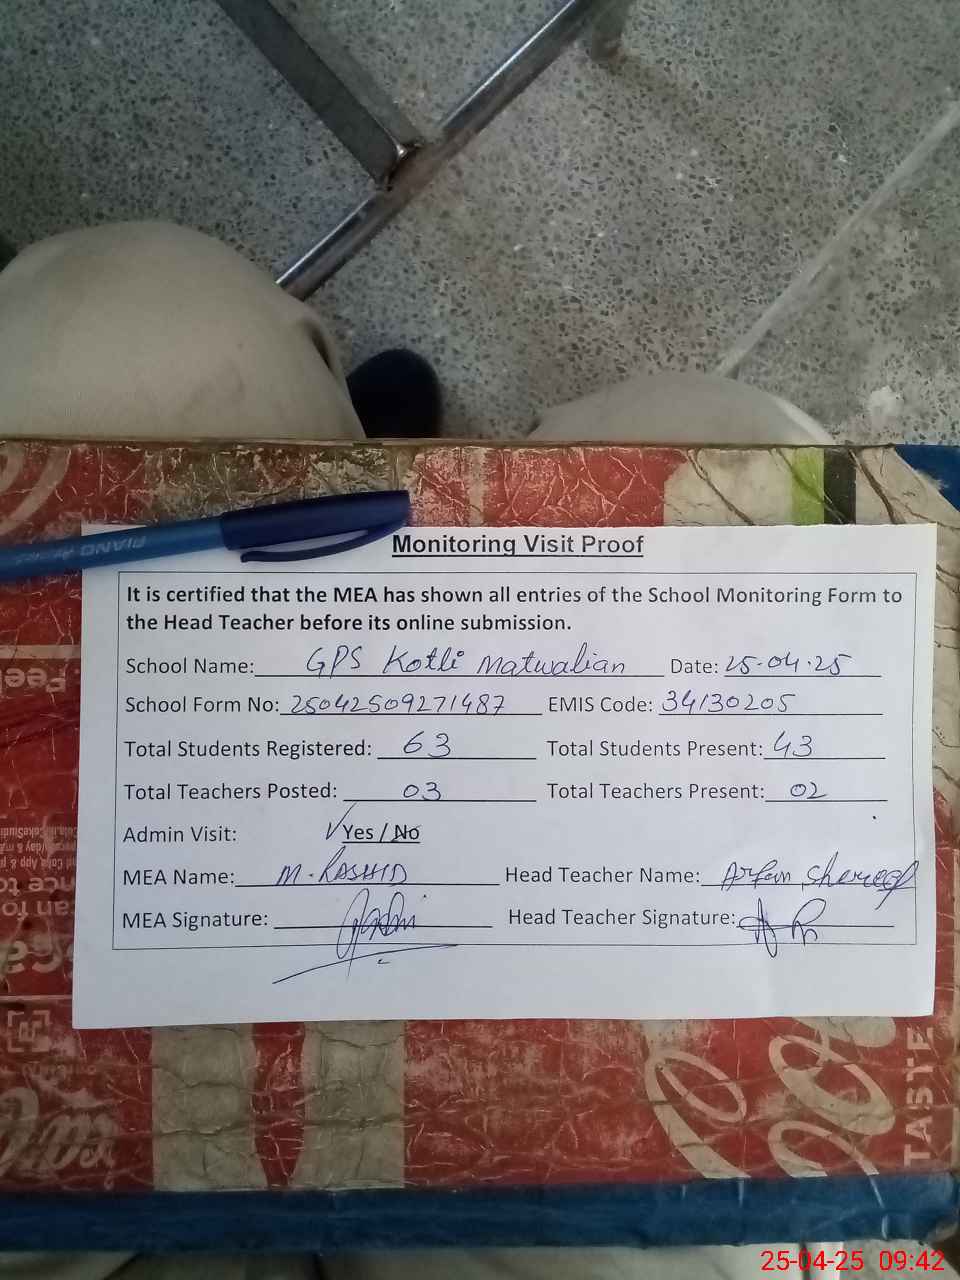 PIANO
Monitoring Visit Proof
It is certified that the MEA has shown all entries of the School Monitoring Form to
the Head Teacher before its online submission.
School Name: GPS Kotli Matwalian Date: 25-04-25
School Form No: 25042509271487 EMIS Code: 34130205
Total Students Registered: 63 Total Students Present: 43
Total Teachers Posted: 03 Total Teachers Present: 02
Admin Visit: ✓Yes / No
MEA Name: M. RASHID Head Teacher Name: Arfan Shereef
MEA Signature: Head Teacher Signature:
TASTE
25-04-25 09:42